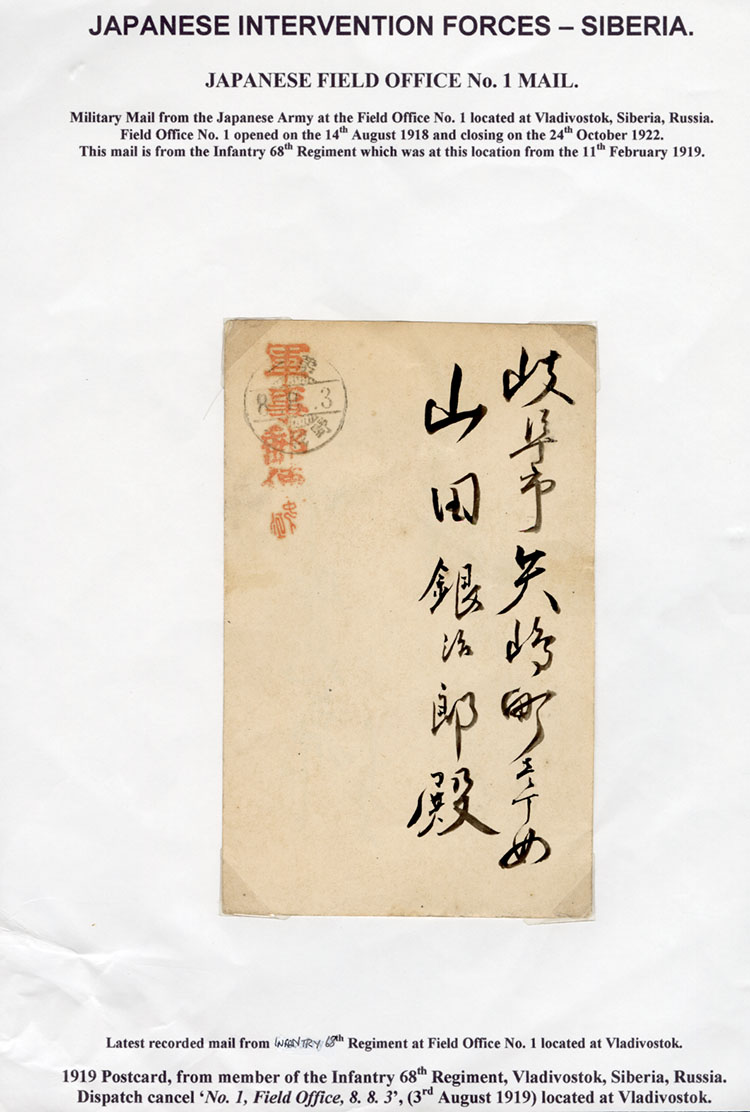 JAPANESE INTERVENTION FORCES – SIBERIA.
JAPANESE FIELD OFFICE No. 1 MAIL.
Military Mail from the Japanese Army at the Field Office No. 1 located at Vladivostok, Siberia, Russia.
Field Office No. 1 opened on the 14th August 1918 and closing on the 24th October 1922.
This mail is from the Infantry 68th Regiment which was at this location from the 11th February 1919.
岐阜市矢嶋町壱丁目
山田銀治郎殿
軍事郵便
8. 8. 3
Latest recorded mail from INFANTRY 68th Regiment at Field Office No. 1 located at Vladivostok.
1919 Postcard, from member of the Infantry 68th Regiment, Vladivostok, Siberia, Russia.
Dispatch cancel ‘No. 1, Field Office, 8. 8. 3’, (3rd August 1919) located at Vladivostok.